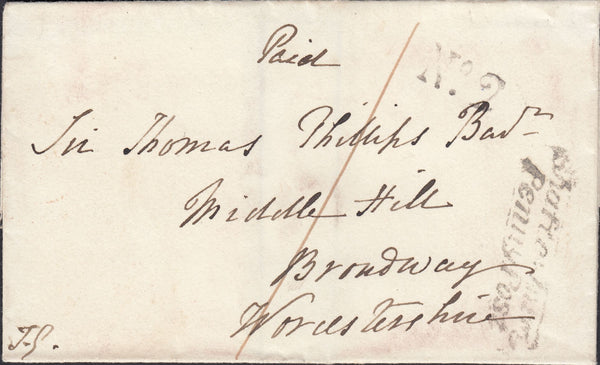 Paid
No. 2
Sir Thomas Phillips Bart
Middle Hill
Broadway
Worcestershire
Penny Post
T.P.